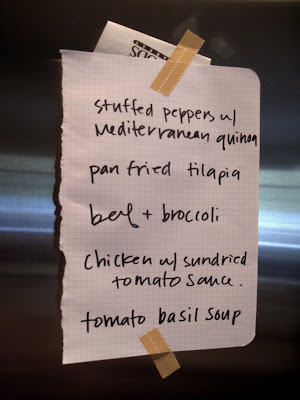 stuffed peppers w/
Mediterranean quinoa
pan fried tilapia
beef + broccoli
Chicken w/ sundried
tomato sauce.
tomato basil soup